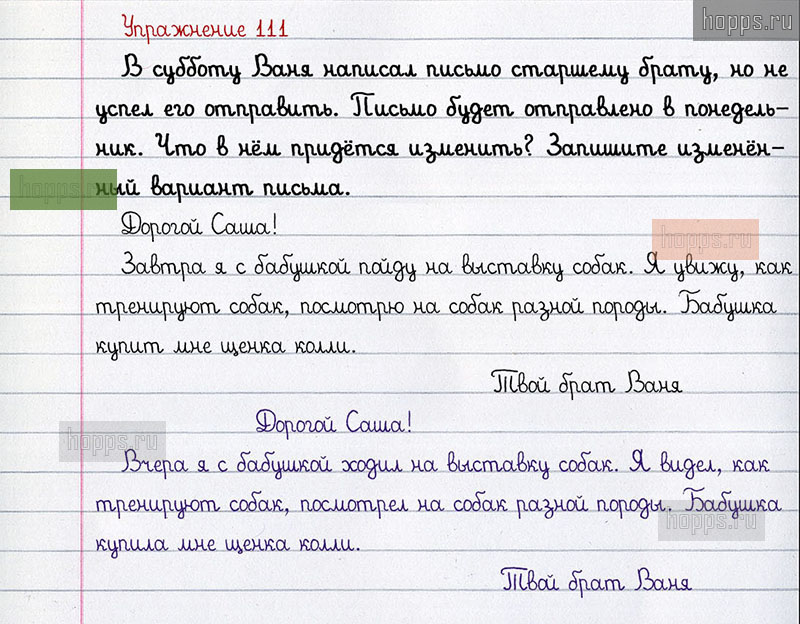 hopps.ru
Упражнение 111
В субботу Ваня написал письмо старшему брату, но не
успел его отправить. Письмо будет отправлено в понедель-
ник. Что в нём придётся изменить? Запишите изменён-
hopps.ru
ный вариант письма.
Дорогой Саша!
hopps.ru
Завтра я с бабушкой пойду на выставку собак. Я увижу, как
тренируют собак, посмотрю на собак разной породы. Бабушка
купит мне щенка колли.
Твой брат Ваня
Дорогой Саша!
hopps.ru
Вчера я с бабушкой ходил на выставку собак. Я видел, как
тренируют собак, посмотрел на собак разной породы. Бабушка
hopps.ru
купила мне щенка колли.
Твой брат Ваня